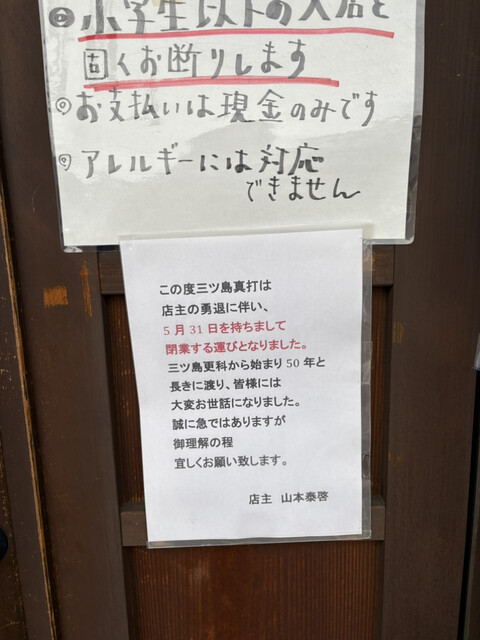 ◎小学生以下の入店を
固くお断りします
◎お支払いは現金のみです
◎アレルギーには対応
できません
この度三ツ島真打は
店主の勇退に伴い、
5月31日を持ちまして
閉業する運びとなりました。
三ツ島更科から始まり50年と
長きに渡り、皆様には
大変お世話になりました。
誠に急ではありますが
御理解の程
宜しくお願い致します。
店主 山本泰啓